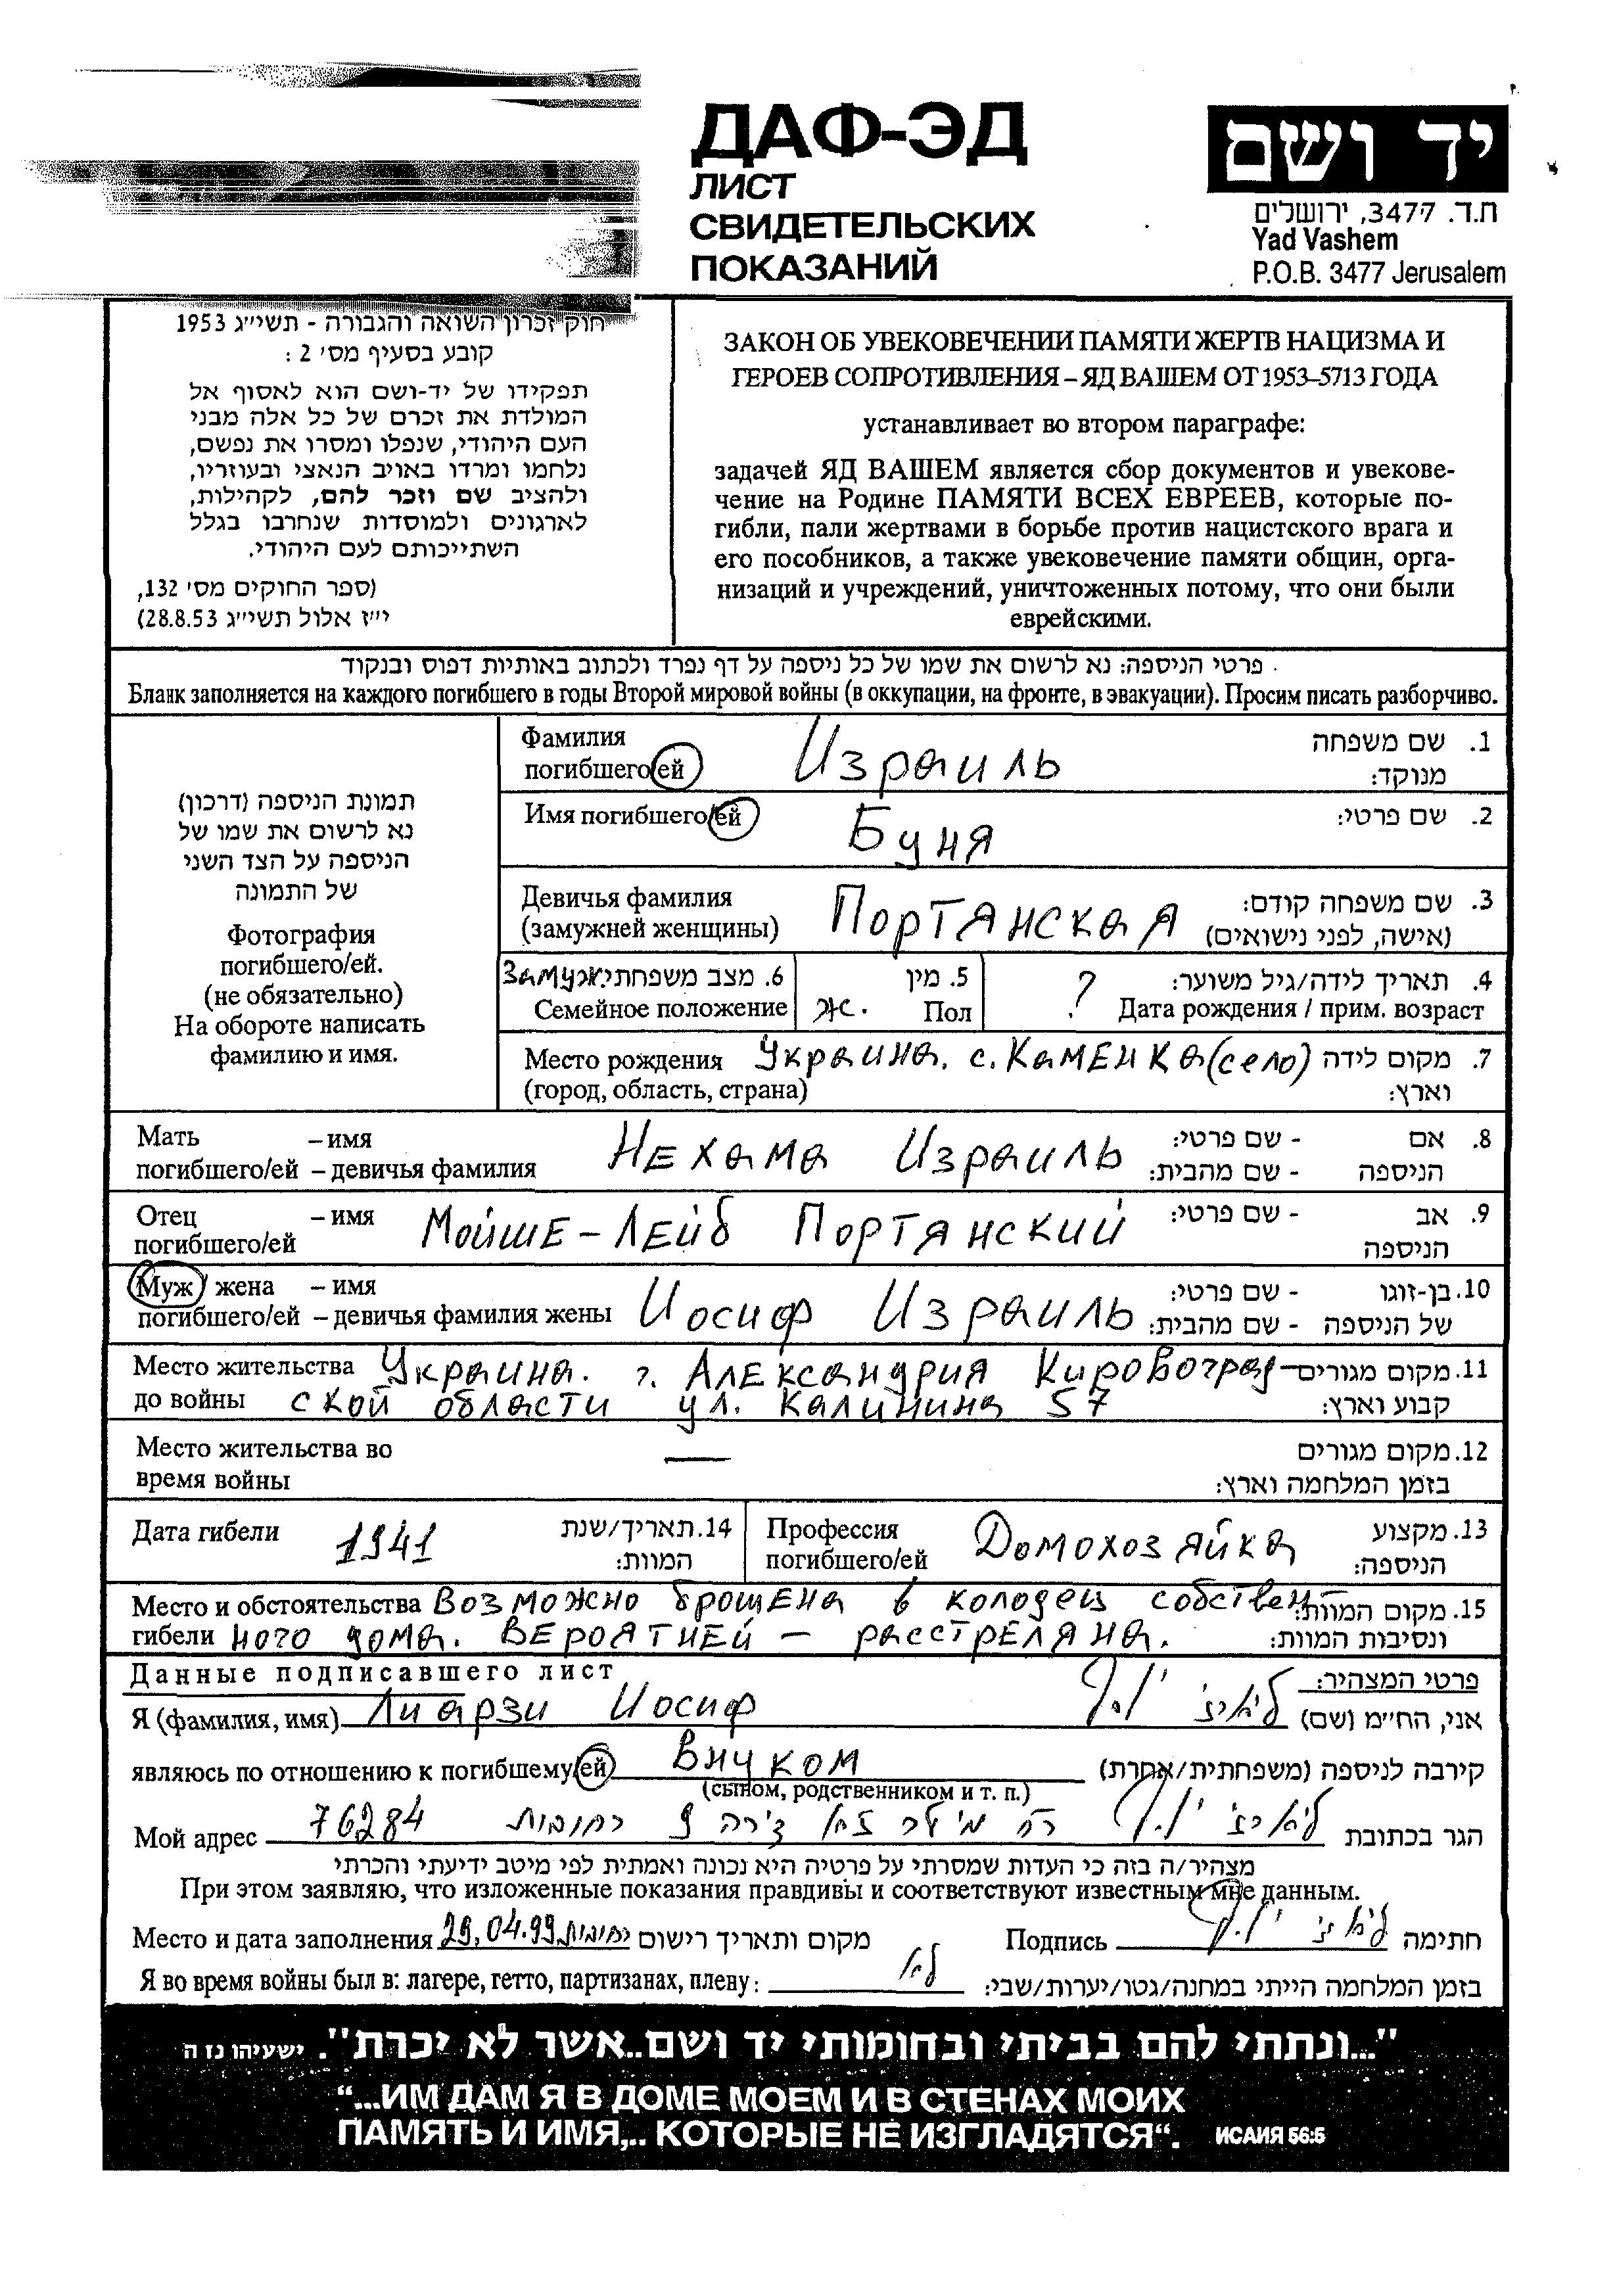 ДАФ-ЭД
ЛИСТ
СВИДЕТЕЛЬСКИХ
ПОКАЗАНИЙ
יד ושם
ת.ד. 3477, ירושלים
Yad Vashem
P.O.B. 3477 Jerusalem
חוק זכרון השואה והגבורה - תשי״ג 1953
קובע בסעיף מס׳ 2 :
תפקידו של יד-ושם הוא לאסוף אל
המולדת את זכרם של כל אלה מבני
העם היהודי, שנפלו ומסרו את נפשם,
נלחמו ומרדו באויב הנאצי ובעוזריו,
ולהציב שם וזכר להם, לקהילות,
לארגונים ולמוסדות שנחרבו בגלל
השתייכותם לעם היהודי.
(ספר החוקים מס׳ 132,
י״ז אלול תשי״ג 28.8.53)
ЗАКОН ОБ УВЕКОВЕЧЕНИИ ПАМЯТИ ЖЕРТВ НАЦИЗМА И
ГЕРОЕВ СОПРОТИВЛЕНИЯ – ЯД ВАШЕМ ОТ 1953–5713 ГОДА
устанавливает во втором параграфе:
задачей ЯД ВАШЕМ является сбор документов и увекове-
чение на Родине ПАМЯТИ ВСЕХ ЕВРЕЕВ, которые по-
гибли, пали жертвами в борьбе против нацистского врага и
его пособников, а также увековечение памяти общин, орга-
низаций и учреждений, уничтоженных потому, что они были
еврейскими.
פרטי הניספה: נא לרשום את שמו של כל ניספה על דף נפרד ולכתוב באותיות דפוס ובנקוד
Бланк заполняется на каждого погибшего в годы Второй мировой войны (в оккупации, на фронте, в эвакуации). Просим писать разборчиво.
תמונת הניספה (דרכון)
נא לרשום את שמו של
הניספה על הצד השני
של התמונה
Фотография
погибшего/ей.
(не обязательно)
На обороте написать
фамилию и имя.
Фамилия
погибшего/ей Израиль 1. שם משפחה
מנוקד:
Имя погибшего/ей Буня 2. שם פרטי:
Девичья фамилия
(замужней женщины) Портянская 3. שם משפחה קודם:
(אישה, לפני נישואים)
замуж. 6. מצב משפחתי:
Семейное положение
5. מין
ж. Пол
4. תאריך לידה/גיל משוער:
? Дата рождения / прим. возраст
Место рождения Украина. с. Каменка (село) 7. מקום לידה
(город, область, страна) וארץ:
Мать – имя Нехама Израиль 8. אם - שם פרטי:
погибшего/ей – девичья фамилия הניספה - שם מהבית:
Отец – имя Мойше-Лейб Портянский 9. אב - שם פרטי:
погибшего/ей הניספה
Муж / жена – имя Иосиф Израиль 10. בן-זוגו - שם פרטי:
погибшего/ей – девичья фамилия жены של הניספה - שם מהבית:
Место жительства Украина. г. Александрия Кировоград- 11. מקום מגורים
до войны ской области ул. Калинина 57 קבוע וארץ:
Место жительства во — 12. מקום מגורים
время войны בזמן המלחמה וארץ:
Дата гибели 1941 14. תאריך/שנת
המוות:
Профессия
погибшего/ей Домохозяйка 13. מקצוע
הניספה:
Место и обстоятельства Возможно брошена в колодец собствен 15. מקום המוות:
гибели ного дома. Вероятней – расстреляна. ונסיבות המוות:
Данные подписавшего лист פרטי המצהיר:
Я (фамилия, имя) Лиарзи Иосиф אני, הח״מ (שם)
являюсь по отношению к погибшему/ей внуком קירבה לניספה (משפחתית/אחרת)
(сыном, родственником и т. п.)
Мой адрес 76284 רחובות דירה 9 הגר בכתובת
מצהיר/ה בזה כי העדות שמסרתי על פרטיה היא נכונה ואמתית לפי מיטב ידיעתי והכרתי
При этом заявляю, что изложенные показания правдивы и соответствуют известным мне данным.
Место и дата заполнения 29.04.99 רחובות מקום ותאריך רישום Подпись חתימה
Я во время войны был в: лагере, гетто, партизанах, плену: לא בזמן המלחמה הייתי במחנה/גטו/יערות/שבי:
"...ונתתי להם בביתי ובחומותי יד ושם..אשר לא יכרת". ישעיהו נז ה
“...ИМ ДАМ Я В ДОМЕ МОЕМ И В СТЕНАХ МОИХ
ПАМЯТЬ И ИМЯ,.. КОТОРЫЕ НЕ ИЗГЛАДЯТСЯ“. ИСАИЯ 56:5